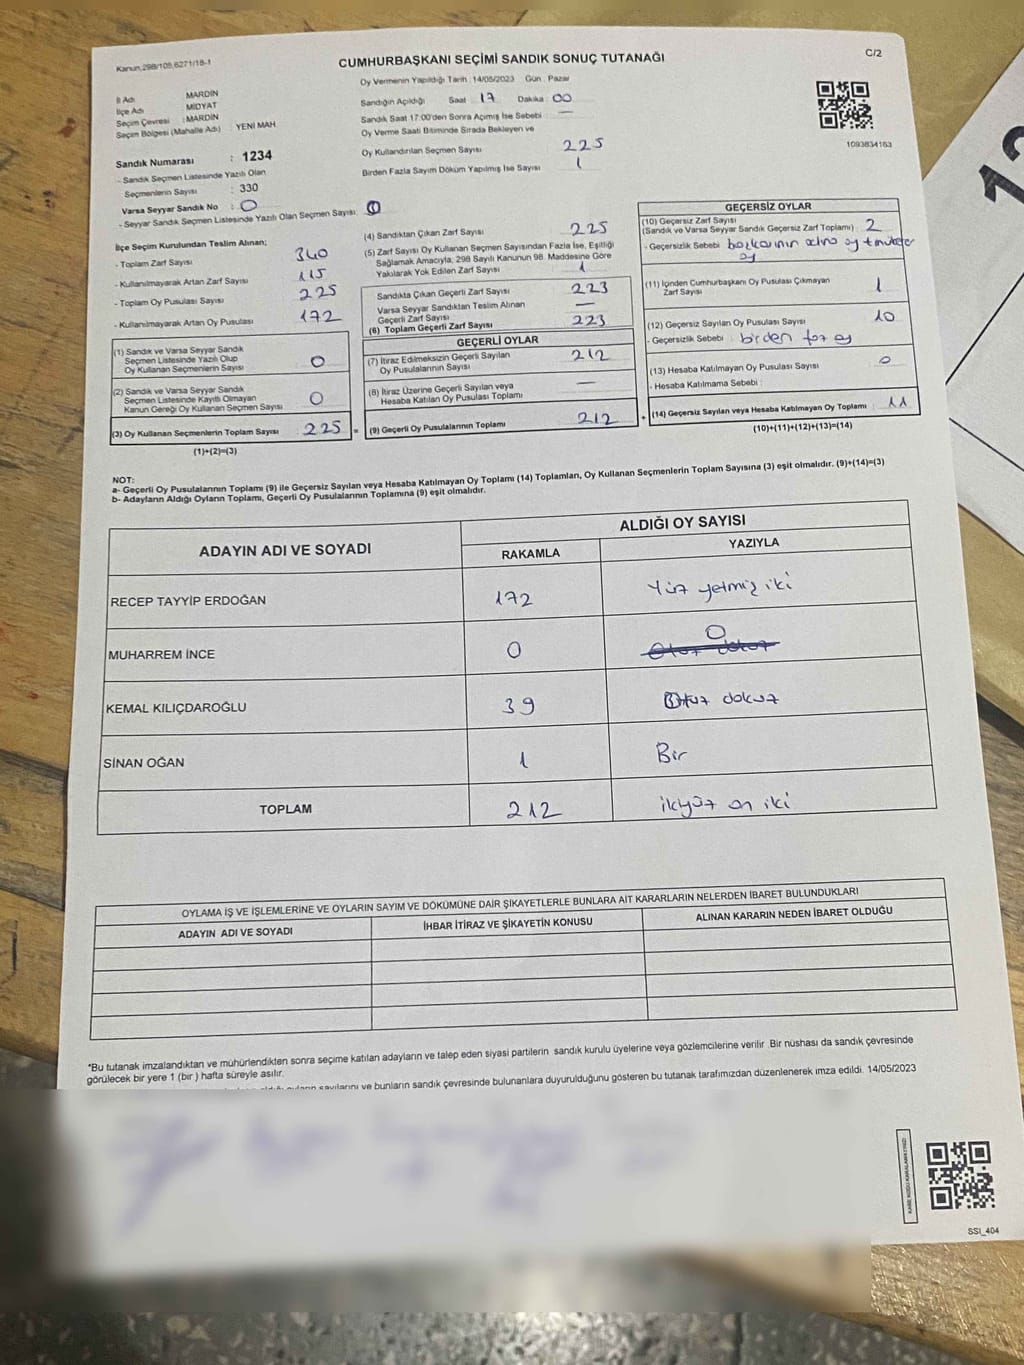 Kanun:298/105,6271/18-1
CUMHURBAŞKANI SEÇİMİ SANDIK SONUÇ TUTANAĞI
C/2
Oy Vermenin Yapıldığı Tarih : 14/05/2023 Gün : Pazar
İl Adı MARDİN
İlçe Adı MİDYAT
Seçim Çevresi : MARDİN
Seçim Bölgesi (Mahalle Adı) : YENİ MAH.
Sandığın Açıldığı Saat 17 Dakika 00
Sandık Saat 17:00'den Sonra Açımış İse Sebebi : —
Oy Verme Saati Bitiminde Sırada Bekleyen ve
Oy Kullandırılan Seçmen Sayısı 225
Birden Fazla Sayım Döküm Yapılmış İse Sayısı 1
1093834163
Sandık Numarası : 1234
- Sandık Seçmen Listesinde Yazılı Olan
Seçmenlerin Sayısı : 330
Varsa Seyyar Sandık No : 0
- Seyyar Sandık Seçmen Listesinde Yazılı Olan Seçmen Sayısı: 0
İlçe Seçim Kurulundan Teslim Alınan;
- Toplam Zarf Sayısı 340
- Kullanılmayarak Artan Zarf Sayısı 115
- Toplam Oy Pusulası Sayısı 225
- Kullanılmayarak Artan Oy Pusulası 172
(1) Sandık ve Varsa Seyyar Sandık
Seçmen Listesinde Yazılı Olup
Oy Kullanan Seçmenlerin Sayısı 0
(2) Sandık ve Varsa Seyyar Sandık
Seçmen Listesinde Kayıtlı Olmayan
Kanun Gereği Oy Kullanan Seçmen Sayısı 0
(3) Oy Kullanan Seçmenlerin Toplam Sayısı 225 =
(1)+(2)=(3)
(4) Sandıktan Çıkan Zarf Sayısı 225
(5) Zarf Sayısı Oy Kullanan Seçmen Sayısından Fazla İse, Eşitliği
Sağlamak Amacıyla, 298 Sayılı Kanunun 98. Maddesine Göre
Yakılarak Yok Edilen Zarf Sayısı 1
Sandıkta Çıkan Geçerli Zarf Sayısı 223
Varsa Seyyar Sandıktan Teslim Alınan
Geçerli Zarf Sayısı —
(6) Toplam Geçerli Zarf Sayısı 223
GEÇERLİ OYLAR
(7) İtiraz Edilmeksizin Geçerli Sayılan
Oy Pusulalarının Sayısı 212
(8) İtiraz Üzerine Geçerli Sayılan veya
Hesaba Katılan Oy Pusulası Toplamı —
(9) Geçerli Oy Pusulalarının Toplamı 212 +
GEÇERSİZ OYLAR
(10) Geçersiz Zarf Sayısı
(Sandık ve Varsa Seyyar Sandık Geçersiz Zarf Toplamı) 2
- Geçersizlik Sebebi : oy
(11) İçinden Cumhurbaşkanı Oy Pusulası Çıkmayan
Zarf Sayısı 1
(12) Geçersiz Sayılan Oy Pusulası Sayısı 10
- Geçersizlik Sebebi : birden faz oy
(13) Hesaba Katılmayan Oy Pusulası Sayısı 0
- Hesaba Katılmama Sebebi :
(14) Geçersiz Sayılan veya Hesaba Katılmayan Oy Toplamı 11
(10)+(11)+(12)+(13)=(14)
NOT:
a- Geçerli Oy Pusulalarının Toplamı (9) ile Geçersiz Sayılan veya Hesaba Katılmayan Oy Toplamı (14) Toplamları, Oy Kullanan Seçmenlerin Toplam Sayısına (3) eşit olmalıdır. (9)+(14)=(3)
b- Adayların Aldığı Oyların Toplamı, Geçerli Oy Pusulalarının Toplamına (9) eşit olmalıdır.
ADAYIN ADI VE SOYADI
ALDIĞI OY SAYISI
RAKAMLA YAZIYLA
RECEP TAYYİP ERDOĞAN 172 Yüz yetmiş iki
MUHARREM İNCE 0 0
Otuz dokuz
KEMAL KILIÇDAROĞLU 39 Otuz dokuz
SİNAN OĞAN 1 Bir
TOPLAM 212 ikiyüz on iki
OYLAMA İŞ VE İŞLEMLERİNE VE OYLARIN SAYIM VE DÖKÜMÜNE DAİR ŞİKAYETLERLE BUNLARA AİT KARARLARIN NELERDEN İBARET BULUNDUKLARI
ADAYIN ADI VE SOYADI İHBAR İTİRAZ VE ŞİKAYETİN KONUSU ALINAN KARARIN NEDEN İBARET OLDUĞU
*Bu tutanak imzalandıktan ve mühürlendikten sonra seçime katılan adayların ve talep eden siyasi partilerin sandık kurulu üyelerine veya gözlemcilerine verilir. Bir nüshası da sandık çevresinde
görülecek bir yere 1 (bir) hafta süreyle asılır.
sayılarını ve bunların sandık çevresinde bulunanlara duyurulduğunu gösteren bu tutanak tarafımızdan düzenlenerek imza edildi. 14/05/2023
SSI_404